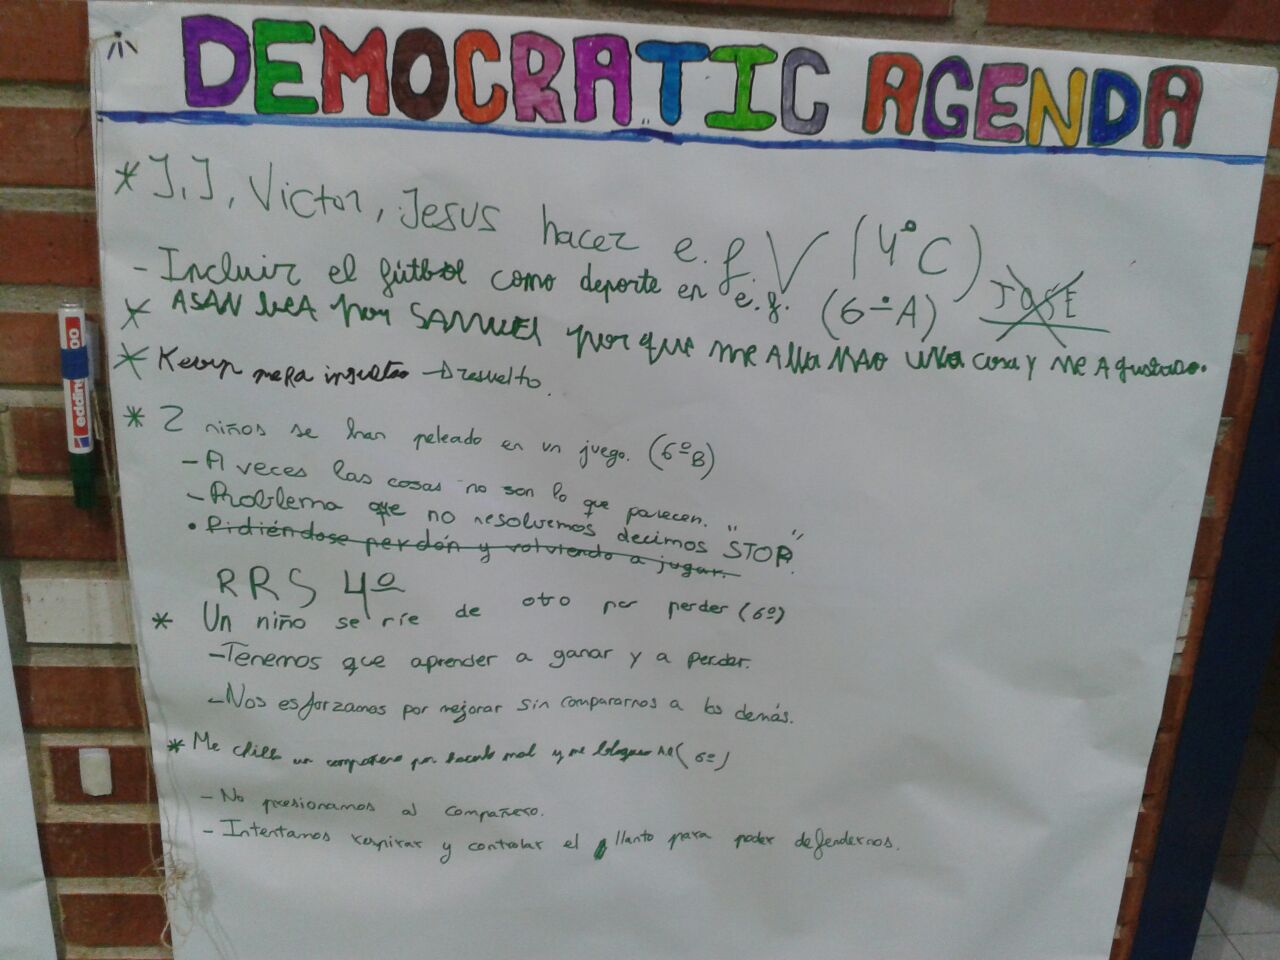 DEMOCRATIC AGENDA
* J.J, Victor, Jesus hacer e.f V (4º C)
- Incluir el fútbol como deporte en e.f. (6º A) JOSE
* por SAMUEL por que me una cosa y me A gustado.
* Kevin insultao → resuelto.
* 2 niños se han peleado en un juego. (6º B)
- A veces las cosas no son lo que parecen.
- Problema que no resolvemos decimos "STOP".
• Pidiéndose perdón y volviendo a jugar.
RRS 4º
* Un niño se ríe de otro por perder (6º)
- Tenemos que aprender a ganar y a perder.
- Nos esforzamos por mejorar sin compararnos a los demás.
* Me chilla un compañero por hacerlo mal y me bloquee (6º)
- No presionamos al compañero.
- Intentamos respirar y controlar el llanto para poder defendernos.
edding